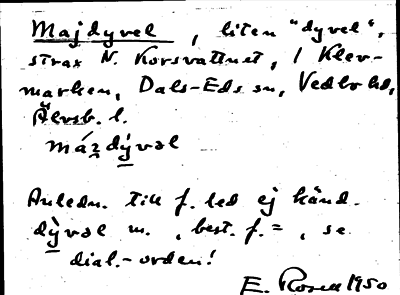 Majdyvel, liten "dyvel",
strax N. Korsvattnet, i Klev-
marken, Dals-Eds sn, Vedbo hd,
Älvsb. l.
dývəl
Anledn. till f. led ej känd.
dỳvəl m., best. f. =, se
dial.-orden!
E. Rosell 1950